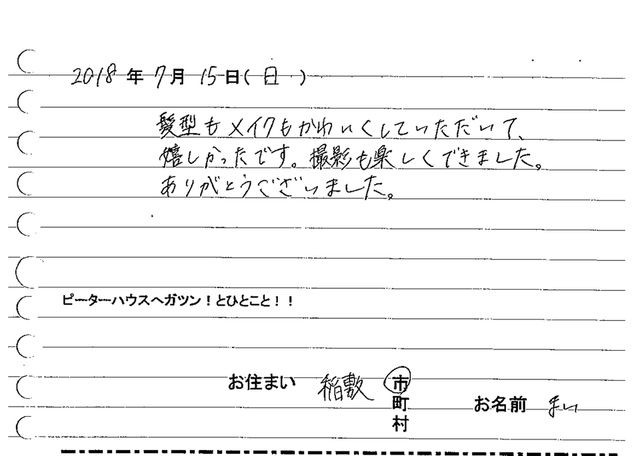 2018年7月15日(日)
髪型もメイクもかわいくしていただいて、
嬉しかったです。撮影も楽しくできました。
ありがとうございました。
ピーターハウスへガツン!とひとこと!!
お住まい 稲敷 市
町
村
お名前 まい